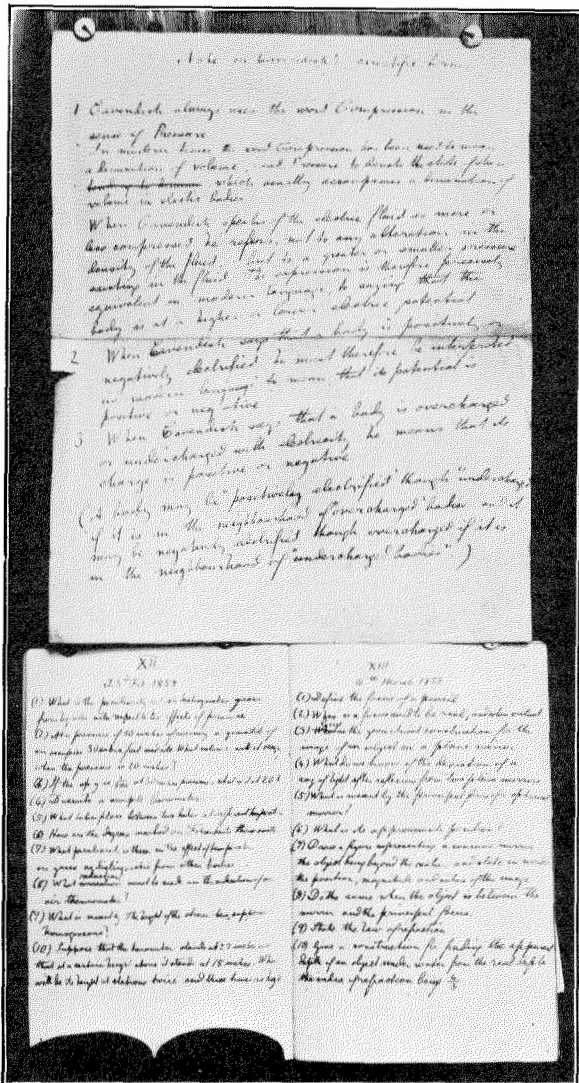 Note on Cavendish's scientific
1 Cavendish always uses the word Compression in the
sense of Pressure
In modern times the word Compression has been used to mean
a diminution of volume and Pressure to denote the state of
which usually accompanies a diminution of
volume in elastic bodies
When Cavendish speaks of the electric fluid as more or
less compressed he refers, not to any alteration in the
density of the fluid, but to a greater or smaller pressure
existing in the fluid. The expression is therefore precisely
equivalent in modern language, to saying that the
body is at a higher or lower electric potential
2 When Cavendish says that a body is positively or
negatively electrified he must therefore be interpreted
in modern language to mean that its potential is
positive or negative
3 When Cavendish says that a body is overcharged
or undercharged with electricity he means that its
charge is positive or negative
(A body may be "positively electrified" though "undercharged"
if it is in the neighbourhood of "overcharged" bodies and it
may be negatively electrified though overcharged if it is
in the neighbourhood of "undercharged bodies")
XII
Feb 1858
(1) What is the peculiarity
with respect to the effects of pressure
(2) At a pressure of 30 inches of mercury a quantity of
air occupies
when the pressure is 20 inches?
(3) If the
(4) Describe a simple barometer
(5) What takes place between two bodies at different temperatures
(6) How are the degrees marked on
(7) What peculiarity is there in the effect of temperature
on gases
(8) What reduction must be made in the indications of an
air thermometer?
(9) What is meant by the height of the atmosphere
homogeneous?
(10) Suppose that the barometer stands at 27 inches and
that at a certain height above it stands at 18 inches. What
will be its height at stations twice and three times as high
XIII
March 1858
(1) Define the focus of a pencil
(2) When is a focus said to be real, and when virtual
(3) Give the geometrical construction for the
image of an object in a plane mirror
(4) What do we know of the deviation of a
ray of light after reflexion from two plane mirrors
(5) What is meant by the principal focus of a
mirror?
(6) What is its approximate position?
(7) Draw a figure representing a concave mirror
the object being beyond the centre and state in words
the position, magnitude and nature of the image
(8) Do the same when the object is between the
mirror and the principal focus.
(9) State the law of refraction
(10) Give a construction for finding the apparent
depth of an object under water from the real depth
the index of refraction being